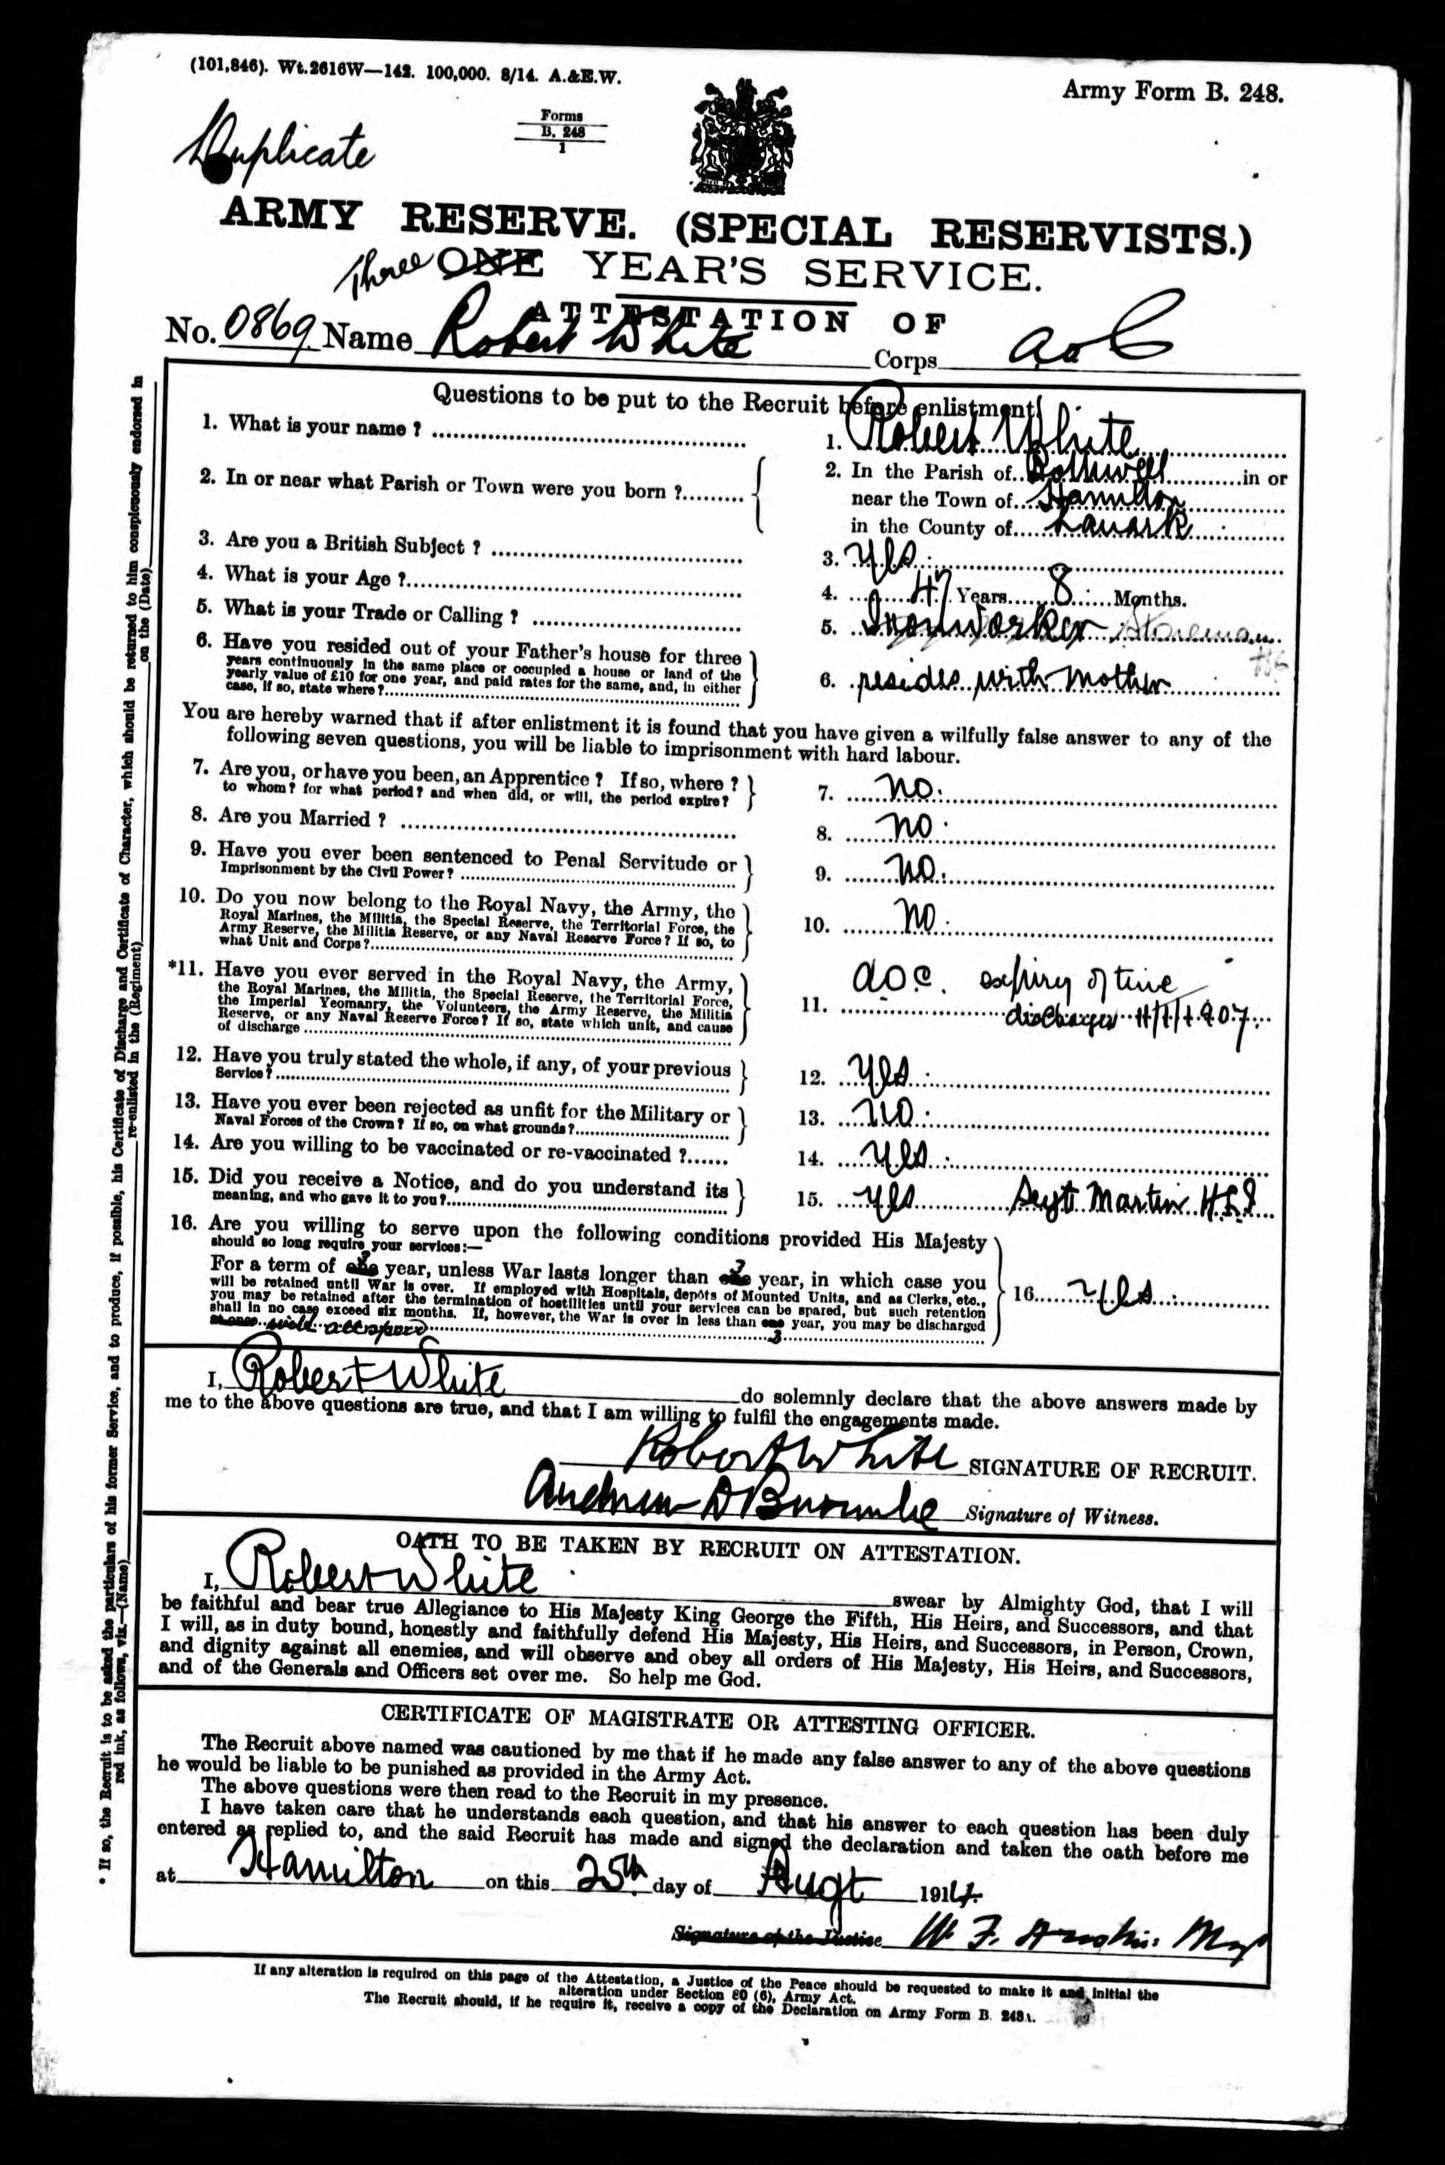 (101,846). Wt.2616W—142. 100,000. 8/14. A.&E.W.
Army Form B. 248.
Forms
B. 248
1
Duplicate
ARMY RESERVE. (SPECIAL RESERVISTS.)
Three ONE YEAR'S SERVICE.
ATTESTATION OF
No. 0869 Name Robert White Corps AOC
Questions to be put to the Recruit before enlistment.
1. What is your name ? 1. Robert White
2. In or near what Parish or Town were you born ? 2. In the Parish of Bothwell in or
near the Town of Hamilton
in the County of Lanark
3. Are you a British Subject ? 3. Yes
4. What is your Age ? 4. 47 Years 8 Months.
5. What is your Trade or Calling ? 5. Ironworker Storeman
6. Have you resided out of your Father's house for three
years continuously in the same place or occupied a house or land of the
yearly value of £10 for one year, and paid rates for the same, and, in either
case, if so, state where ? 6. resides with mother
You are hereby warned that if after enlistment it is found that you have given a wilfully false answer to any of the
following seven questions, you will be liable to imprisonment with hard labour.
7. Are you, or have you been, an Apprentice ? If so, where ?
to whom? for what period? and when did, or will, the period expire? 7. no.
8. Are you Married ? 8. no
9. Have you ever been sentenced to Penal Servitude or
Imprisonment by the Civil Power? 9. no.
10. Do you now belong to the Royal Navy, the Army, the
Royal Marines, the Militia, the Special Reserve, the Territorial Force, the
Army Reserve, the Militia Reserve, or any Naval Reserve Force? If so, to
what Unit and Corps? 10. no
*11. Have you ever served in the Royal Navy, the Army,
the Royal Marines, the Militia, the Special Reserve, the Territorial Force,
the Imperial Yeomanry, the Volunteers, the Army Reserve, the Militia
Reserve, or any Naval Reserve Force? If so, state which unit, and cause
of discharge 11. AOC. expiry of time
discharged 11/1/1907
12. Have you truly stated the whole, if any, of your previous
Service? 12. Yes
13. Have you ever been rejected as unfit for the Military or
Naval Forces of the Crown? If so, on what grounds? 13. no
14. Are you willing to be vaccinated or re-vaccinated ? 14. Yes
15. Did you receive a Notice, and do you understand its
meaning, and who gave it to you? 15. Yes Sergt Martin H.L.I
16. Are you willing to serve upon the following conditions provided His Majesty
should so long require your services:—
For a term of one 3 year, unless War lasts longer than one 3 year, in which case you
will be retained until War is over. If employed with Hospitals, depôts of Mounted Units, and as Clerks, etc.,
you may be retained after the termination of hostilities until your services can be spared, but such retention
shall in no case exceed six months. If, however, the War is over in less than one year, you may be discharged
at once 3
16. Yes
I, Robert White do solemnly declare that the above answers made by
me to the above questions are true, and that I am willing to fulfil the engagements made.
Robert White SIGNATURE OF RECRUIT.
Andrew Signature of Witness.
OATH TO BE TAKEN BY RECRUIT ON ATTESTATION.
I, Robert White swear by Almighty God, that I will
be faithful and bear true Allegiance to His Majesty King George the Fifth, His Heirs, and Successors, and that
I will, as in duty bound, honestly and faithfully defend His Majesty, His Heirs, and Successors, in Person, Crown,
and dignity against all enemies, and will observe and obey all orders of His Majesty, His Heirs, and Successors,
and of the Generals and Officers set over me. So help me God.
CERTIFICATE OF MAGISTRATE OR ATTESTING OFFICER.
The Recruit above named was cautioned by me that if he made any false answer to any of the above questions
he would be liable to be punished as provided in the Army Act.
The above questions were then read to the Recruit in my presence.
I have taken care that he understands each question, and that his answer to each question has been duly
entered as replied to, and the said Recruit has made and signed the declaration and taken the oath before me
at Hamilton on this 25th day of Augt 1914.
Signature of the Justice W. F.
If any alteration is required on this page of the Attestation, a Justice of the Peace should be requested to make it and initial the
alteration under Section 80 (6), Army Act.
The Recruit should, if he require it, receive a copy of the Declaration on Army Form B. 248A.
* If so, the Recruit is to be asked the particulars of his former Service, and to produce, if possible, his Certificate of Discharge and Certificate of Character, which should be returned to him conspicuously endorsed in
red ink, as follows, viz.—(Name) re-enlisted in the (Regiment) on the (Date)